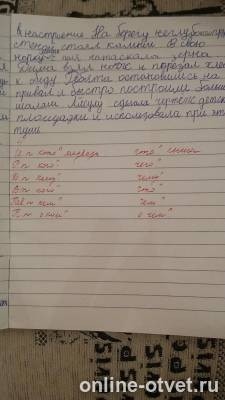 настроение На берегу неглубокой
стоял камыш В свою
норку натаскала зерна
Дима взял нож и порезал хлеб
к меду Ребята остановились на
привал и быстро построили
шалаш сделала чертеж детск
площадки и использовала при
туши
И п кто? медведь что?
Р п кого? чего?
Д п кому? чему?
В п кого? что?
Тв п кем? чем?
П п о ком? о чем?
online-otvet.ru